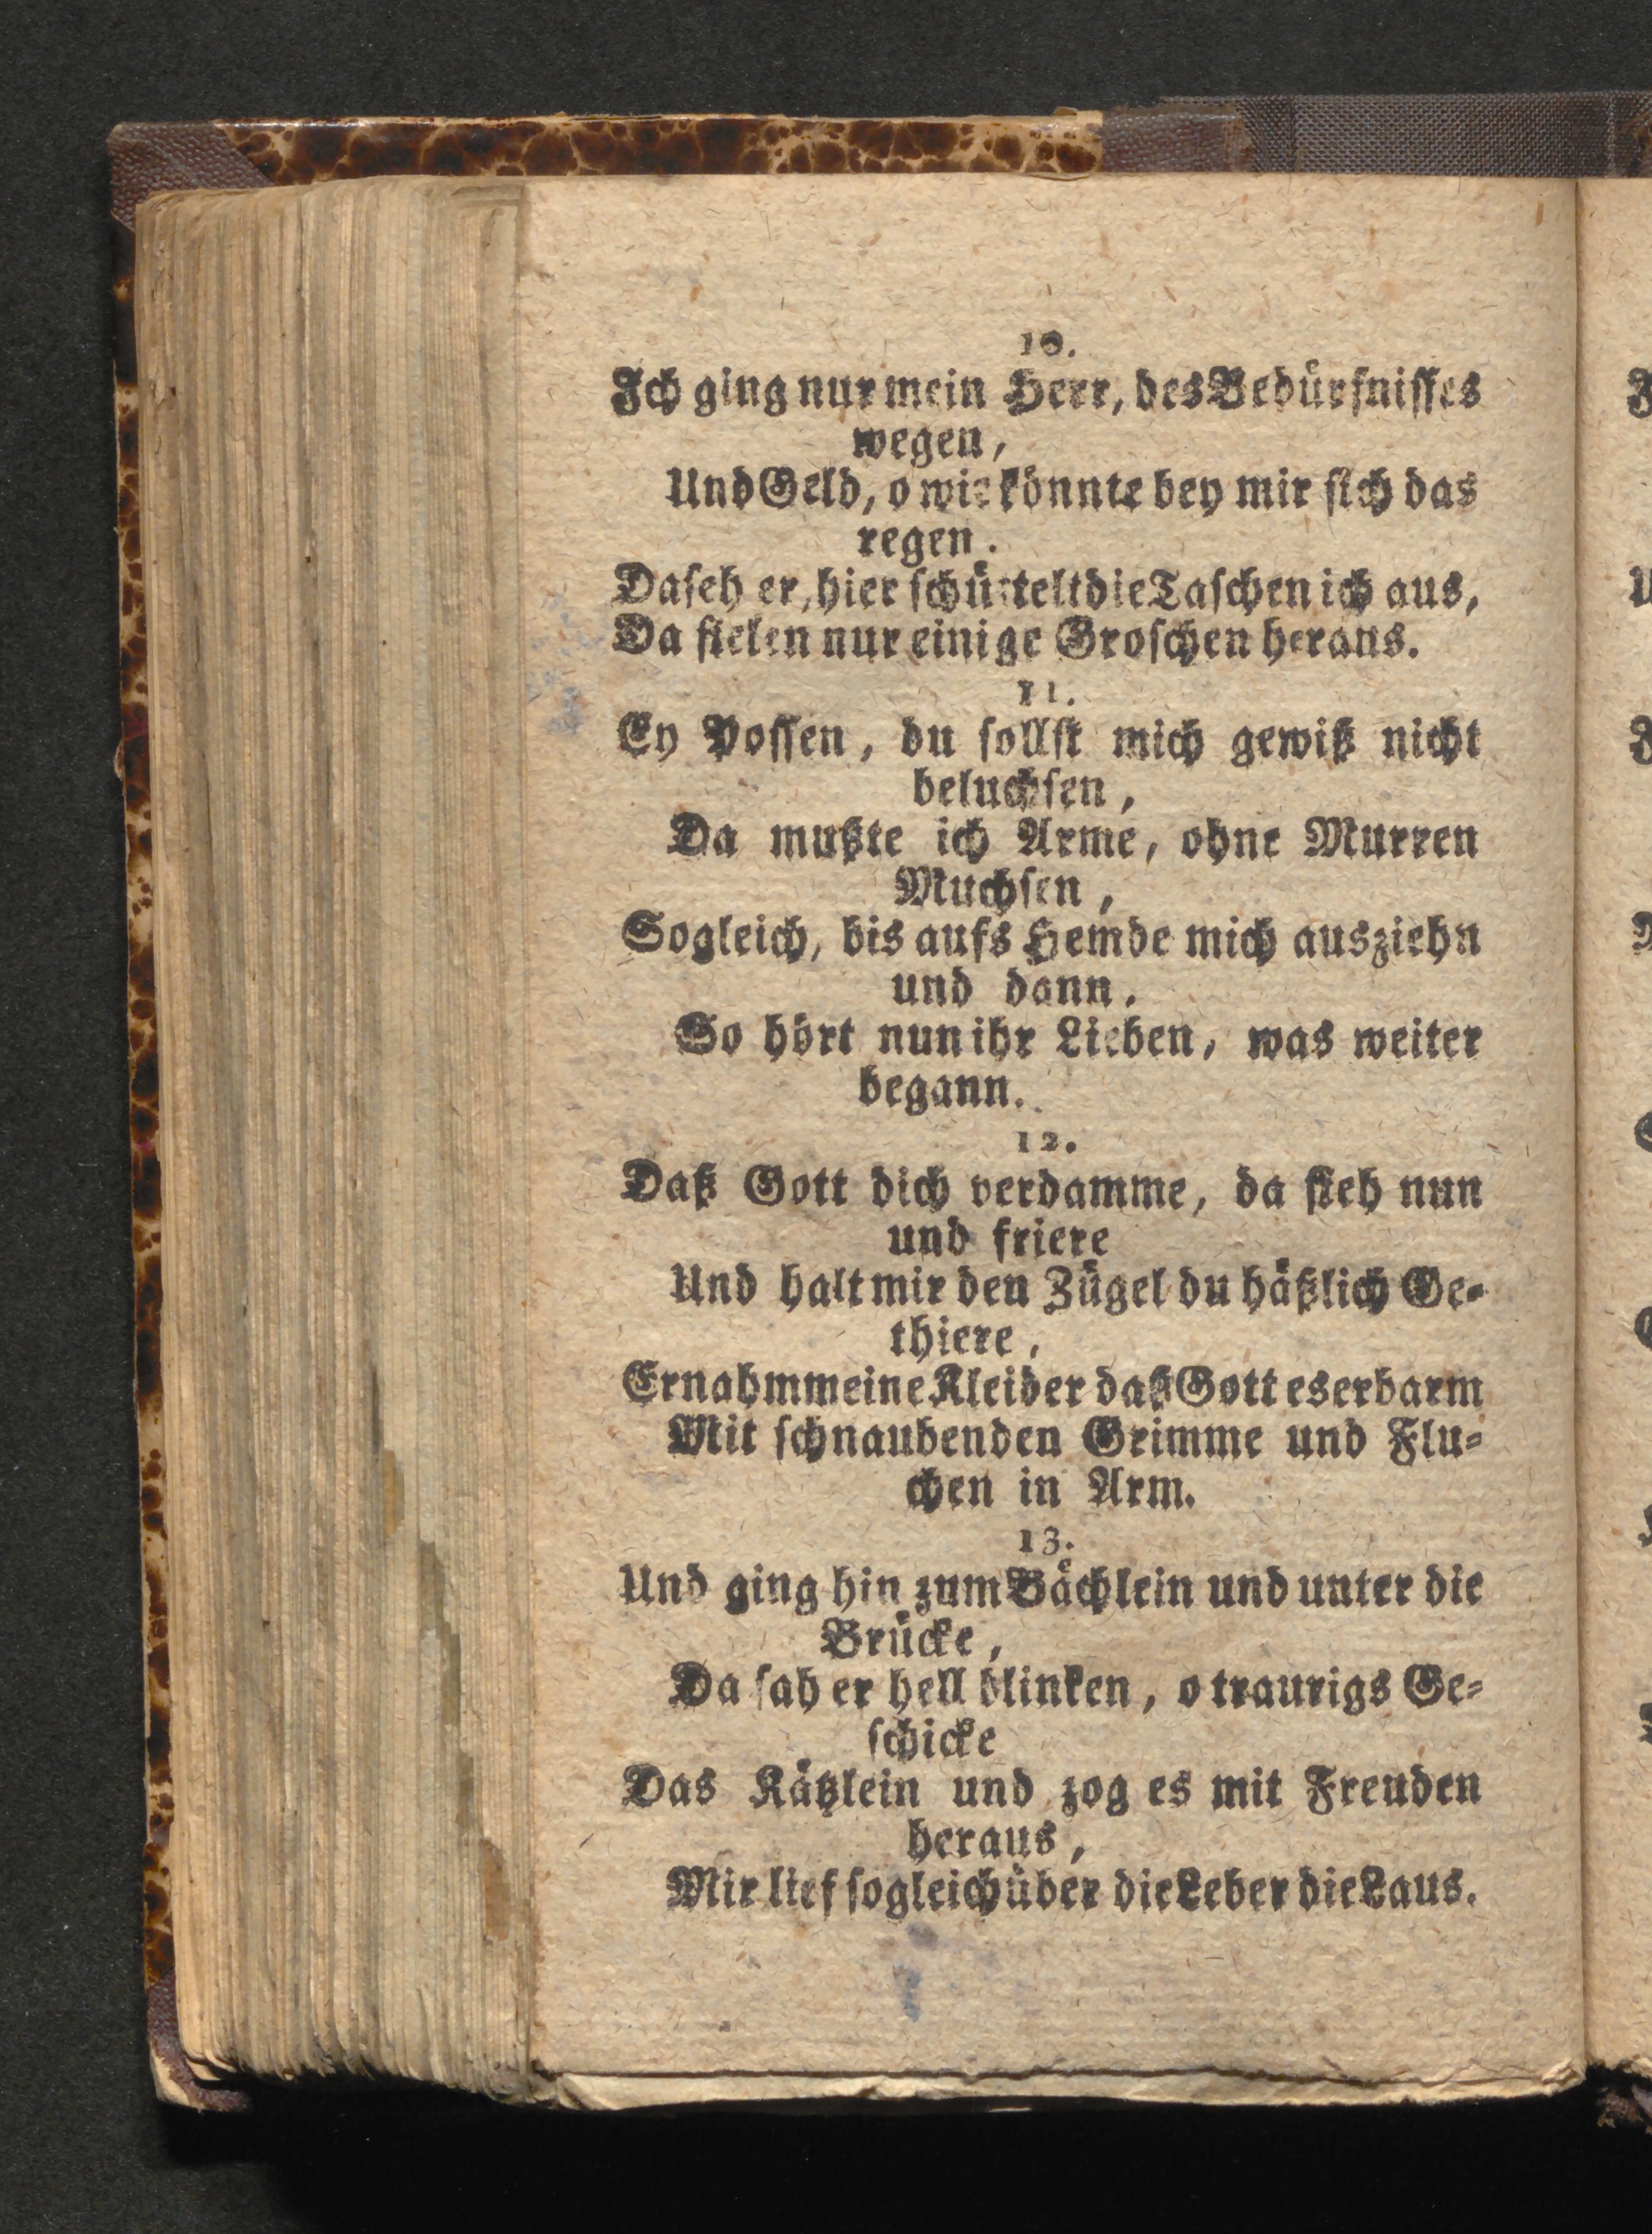 10.
Ich ging nur mein Herr, des Bedürfnisses
wegen,
Und Geld, o wie könnte bey mir sich das
regen.
Da seh er, hier schüttelt die Taschen ich aus,
Da fielen nur einige Groschen heraus.
11.
Ey Possen, du sollst mich gewiß nicht
beluchsen,
Da mußte ich Arme, ohne Murren
Muchsen,
Sogleich, bis aufs Hemde mich ausziehn
und dann.
So hört nun ihr Lieben, was weiter
begann.
12.
Daß Gott dich verdamme, da steh nun
und friere
Und halt mir den Zügel du häßlich Ge-
thiere,
Er nahm meine Kleider daß Gott es erbarm
Mit schnaubenden Grimme und Flu-
chen in Arm.
13.
Und ging hin zum Bächlein und unter die
Brücke,
Da sah er hell blinken, o traurigs Ge-
schicke
Das Kätzlein und zog es mit Freuden
heraus,
Mir lief sogleich über die Leber die Laus.